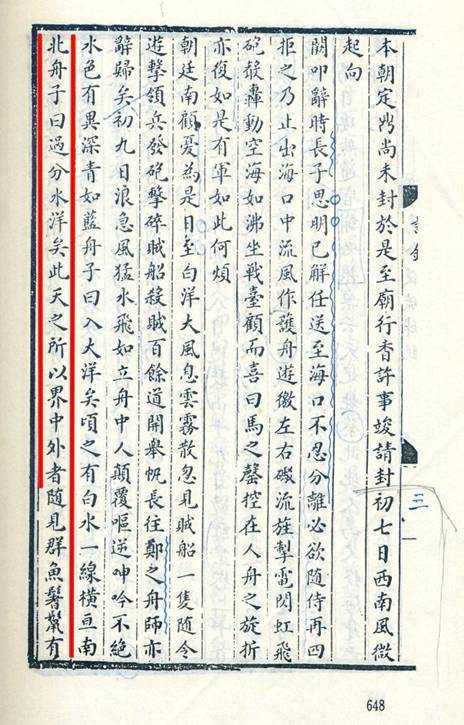 本朝定鼎尚未封於是至廟行香許事竣請封初七日西南風微
起向
闕叩辭時長子思明已解任送至海口不忍分離必欲隨侍再四
拒之乃止出海口中流風作護舟遊徼左右礮流旌掣電閃虹飛
砲殸轟動空海如沸坐戰臺顧而喜曰馬之罄控在人舟之旋折
亦復如是有軍如此何煩
朝廷南顧憂為是日至白洋大風息雲霧散忽見賊船一隻隨令
遊擊領兵發砲擊碎賊船殺賊百餘道開舉帆長往鄭之舟師亦
辭歸矣初九日浪急風猛水飛如立舟中人顛覆嘔逆呻吟不絕
水色有異深青如藍舟子曰入大洋矣頃之有白水一線橫亘南
北舟子曰過分水洋矣此天之所以界中外者隨見群魚鬐鬣有
三
648